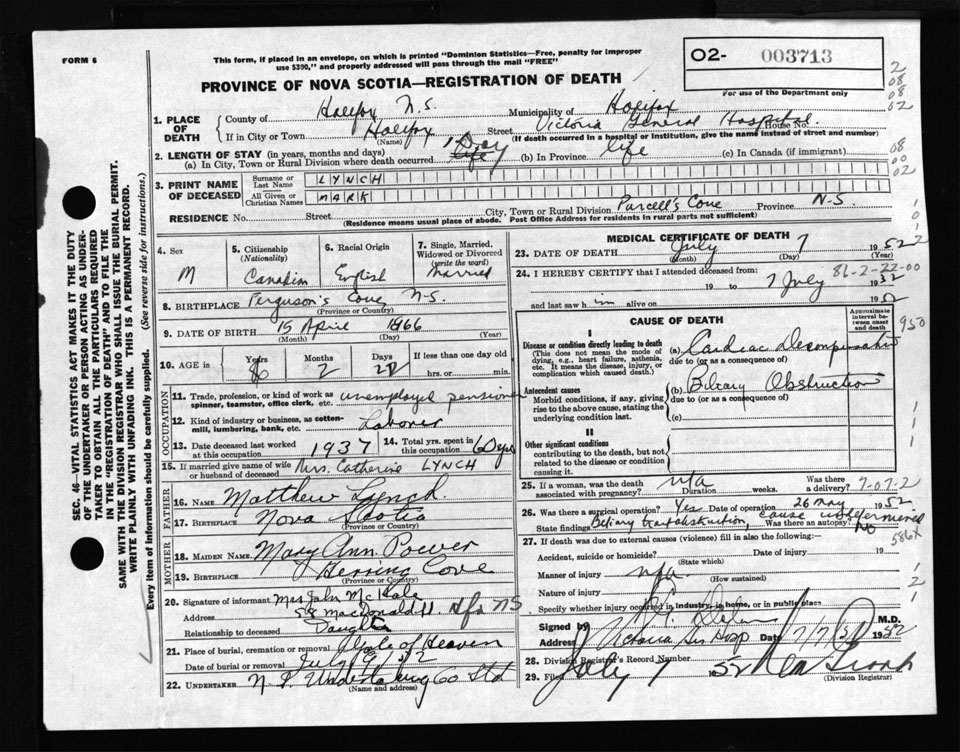 FORM 6
This form, if placed in an envelope, on which is printed "Dominion Statistics—Free, penalty for improper
use $300," and properly addressed will pass through the mail "FREE"
O2- 003713
For use of the Department only
PROVINCE OF NOVA SCOTIA—REGISTRATION OF DEATH
2
08
08
02
08
00
02
1. PLACE OF DEATH
County of Halifax N.S. Municipality of Halifax
If in City or Town Halifax (Name) Street Victoria General Hospital House No.
(If death occurred in a hospital or institution, give the name instead of street and number)
2. LENGTH OF STAY (in years, months and days)
(a) In City, Town or Rural Division where death occurred 1 Day life (b) In Province life (c) In Canada (if immigrant)
3. PRINT NAME OF DECEASED
Surname or Last Name LYNCH
All Given or Christian Names MARK
RESIDENCE No. Street City, Town or Rural Division Purcell's Cove Province N.S.
(Residence means usual place of abode. Post Office Address for residents in rural parts not sufficient)
4. Sex M
5. Citizenship (Nationality) Canadian
6. Racial Origin English
7. Single, Married, Widowed or Divorced (write the word) Married
8. BIRTHPLACE Ferguson's Cove N.S.
(Province or Country)
9. DATE OF BIRTH 15 April 1866
(Month) (Day) (Year)
10. AGE in Years 86 Months 2 Days 22 If less than one day old hrs. or min.
11. Trade, profession, or kind of work as spinner, teamster, office clerk, etc. unemployed pensioner
12. Kind of industry or business, as cotton-mill, lumbering, bank, etc. Laborer
13. Date deceased last worked at this occupation 1937
14. Total yrs. spent in this occupation 60 yrs
15. If married give name of wife or husband of deceased Mrs. Catherine LYNCH
FATHER
16. NAME Matthew Lynch
17. BIRTHPLACE Nova Scotia
(Province or Country)
MOTHER
18. MAIDEN NAME Mary Ann Power
19. BIRTHPLACE Herring Cove
(Province or Country)
20. Signature of informant Mrs John McHale
Address 58 MacDonald St. Hfx NS
Relationship to deceased Daughter
21. Place of burial, cremation or removal Gate of Heaven
Date of burial or removal July 9 52
22. UNDERTAKER N S Undertaking Co Ltd
(Name and address)
MEDICAL CERTIFICATE OF DEATH
23. DATE OF DEATH July 7 1952
(Month) (Day) (Year)
24. I HEREBY CERTIFY that I attended deceased from: 86-2-22-00
19 to 7 July 1952
and last saw him alive on 1952
CAUSE OF DEATH
Approximate interval between onset and death
950
I
Disease or condition directly leading to death
(This does not mean the mode of dying, e.g., heart failure, asthenia, etc. It means the disease, injury, or complication which caused death.)
(a) Cardiac Decompensation
due to (or as a consequence of)
Antecedent causes
Morbid conditions, if any, giving rise to the above cause, stating the underlying condition last.
(b) Biliary Obstruction
due to (or as a consequence of)
(c)
II
Other significant conditions
contributing to the death, but not related to the disease or condition causing it.
25. If a woman, was the death associated with pregnancy? n/a Duration weeks. Was there a delivery? 7-07-2
26. Was there a surgical operation? Yes Date of operation 26 May 1952
State findings Biliary tract obstruction, cause undetermined Was there an autopsy? NO
586X
27. If death was due to external causes (violence) fill in also the following:
Accident, suicide or homicide? Date of injury 19
(State which)
Manner of injury n/a
(How sustained)
Nature of injury
Specify whether injury occurred in industry, in home, or in public place
Signed by M.D.
Address Victoria Gen Hosp Date 7/7/52 1952
28. Division Registrar's Record Number
29. Filed July 7 1952
(Division Registrar)
SEC. 46—VITAL STATISTICS ACT MAKES IT THE DUTY
OF THE UNDERTAKER OR PERSON ACTING AS UNDER-
TAKER TO OBTAIN ALL THE PARTICULARS REQUIRED
IN THE "REGISTRATION OF DEATH" AND TO FILE THE
SAME WITH THE DIVISION REGISTRAR WHO SHALL ISSUE THE BURIAL PERMIT.
WRITE PLAINLY WITH UNFADING INK. THIS IS A PERMANENT RECORD.
Every item of information should be carefully supplied. (See reverse side for instructions.)